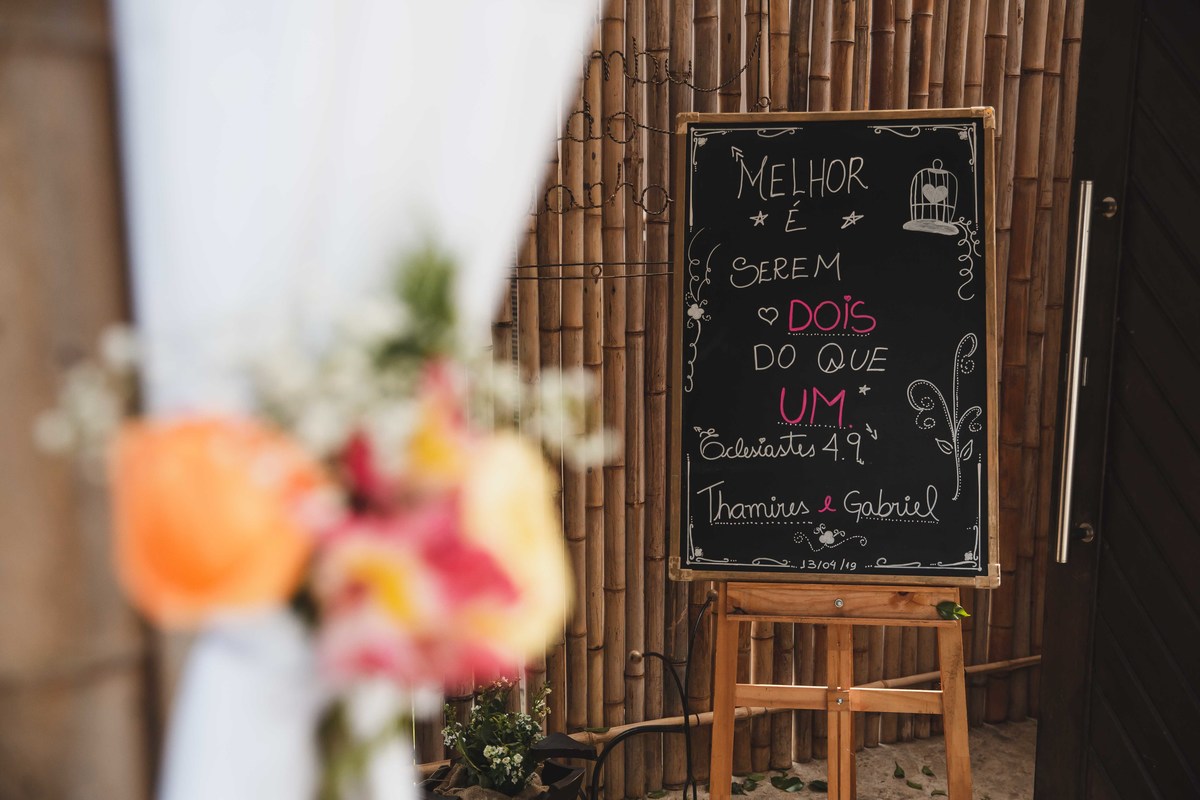 MELHOR
É
SEREM
DOIS
DO QUE
UM.
Eclesiastes 4.9
Thamires e Gabriel
13/04/19